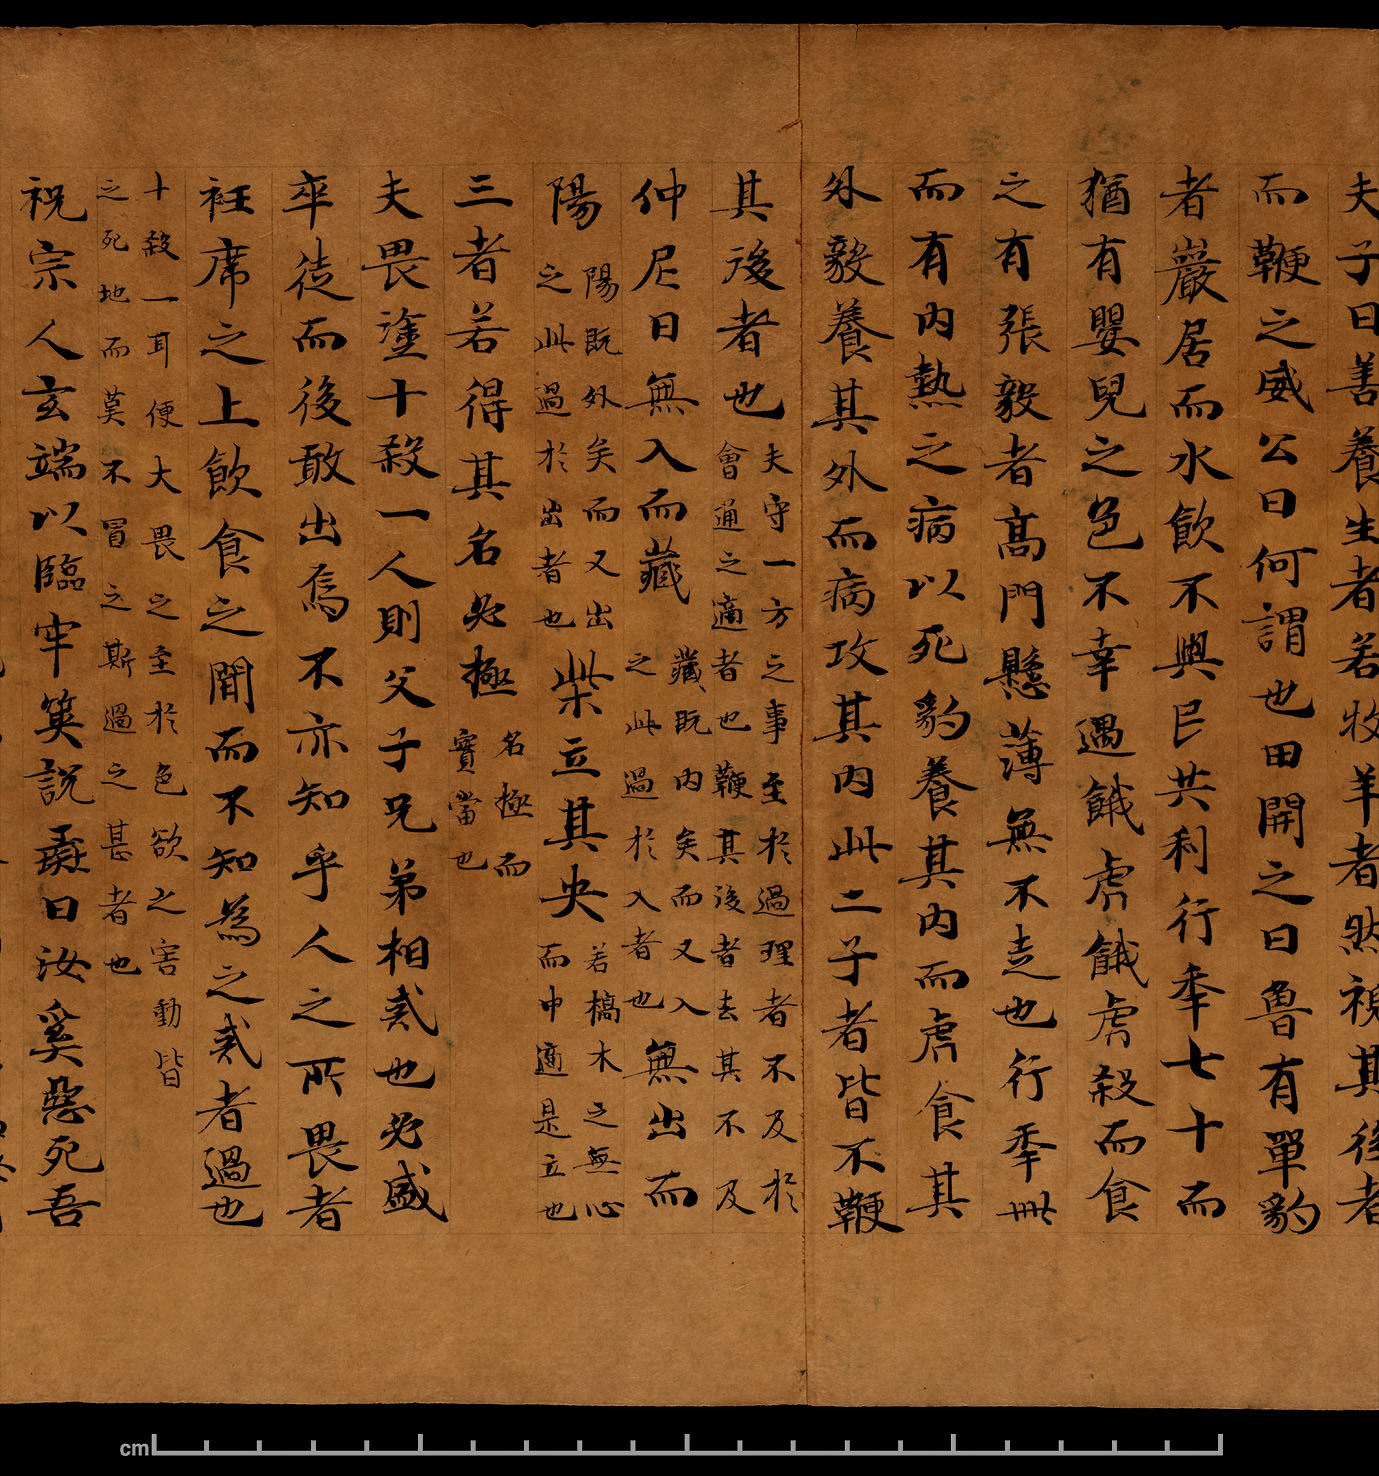 夫子曰善養生者若牧羊者然視其後者
而鞭之威公曰何謂也田開之曰魯有單豹
者巖居而水飲不與民共利行秊七十而
猶有嬰兒之色不幸遇餓虎餓虎殺而食
之有張毅者高門懸薄無不走也行秊卌
而有內熱之病以死豹養其內而虎食其
外毅養其外而病攻其內此二子者皆不鞭
其後者也
夫守一方之事至於過理者不及於
會通之適者也鞭其後者去其不及
仲尼曰無入而藏
藏既內矣而又入
之此過於入者也
無出而
陽
陽既外矣而又出
之此過於出者也
柴立其央
若槁木之無心
而中適是立也
三者若得其名必極
名極而
實當也
夫畏塗十殺一人則父子兄弟相戒也必盛
卒徒而後敢出焉不亦知乎人之所畏者
衽席之上飲食之閒而不知為之戒者過也
十殺一耳便大畏之至於色欲之害動皆
之死地而莫不冒之斯過之甚者也
祝宗人玄端以臨牢筴說彘曰汝奚惡死吾